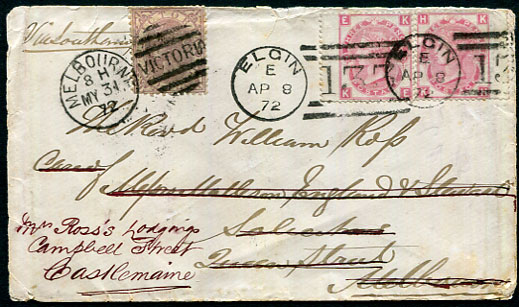 Via Southam
MELBOURNE
8 H
MY 31
72
VICTORIA
ELGIN
E
AP 8
72
133
E K
K E
ELGIN
E
AP 8
72
13
H K
K
The Revd William Ross
Care of
Messrs Matheson England & Stewart
Solicitors
Queen Street
Melbourne
Mrs Ross's Lodgings
Campbell Street
Castlemaine